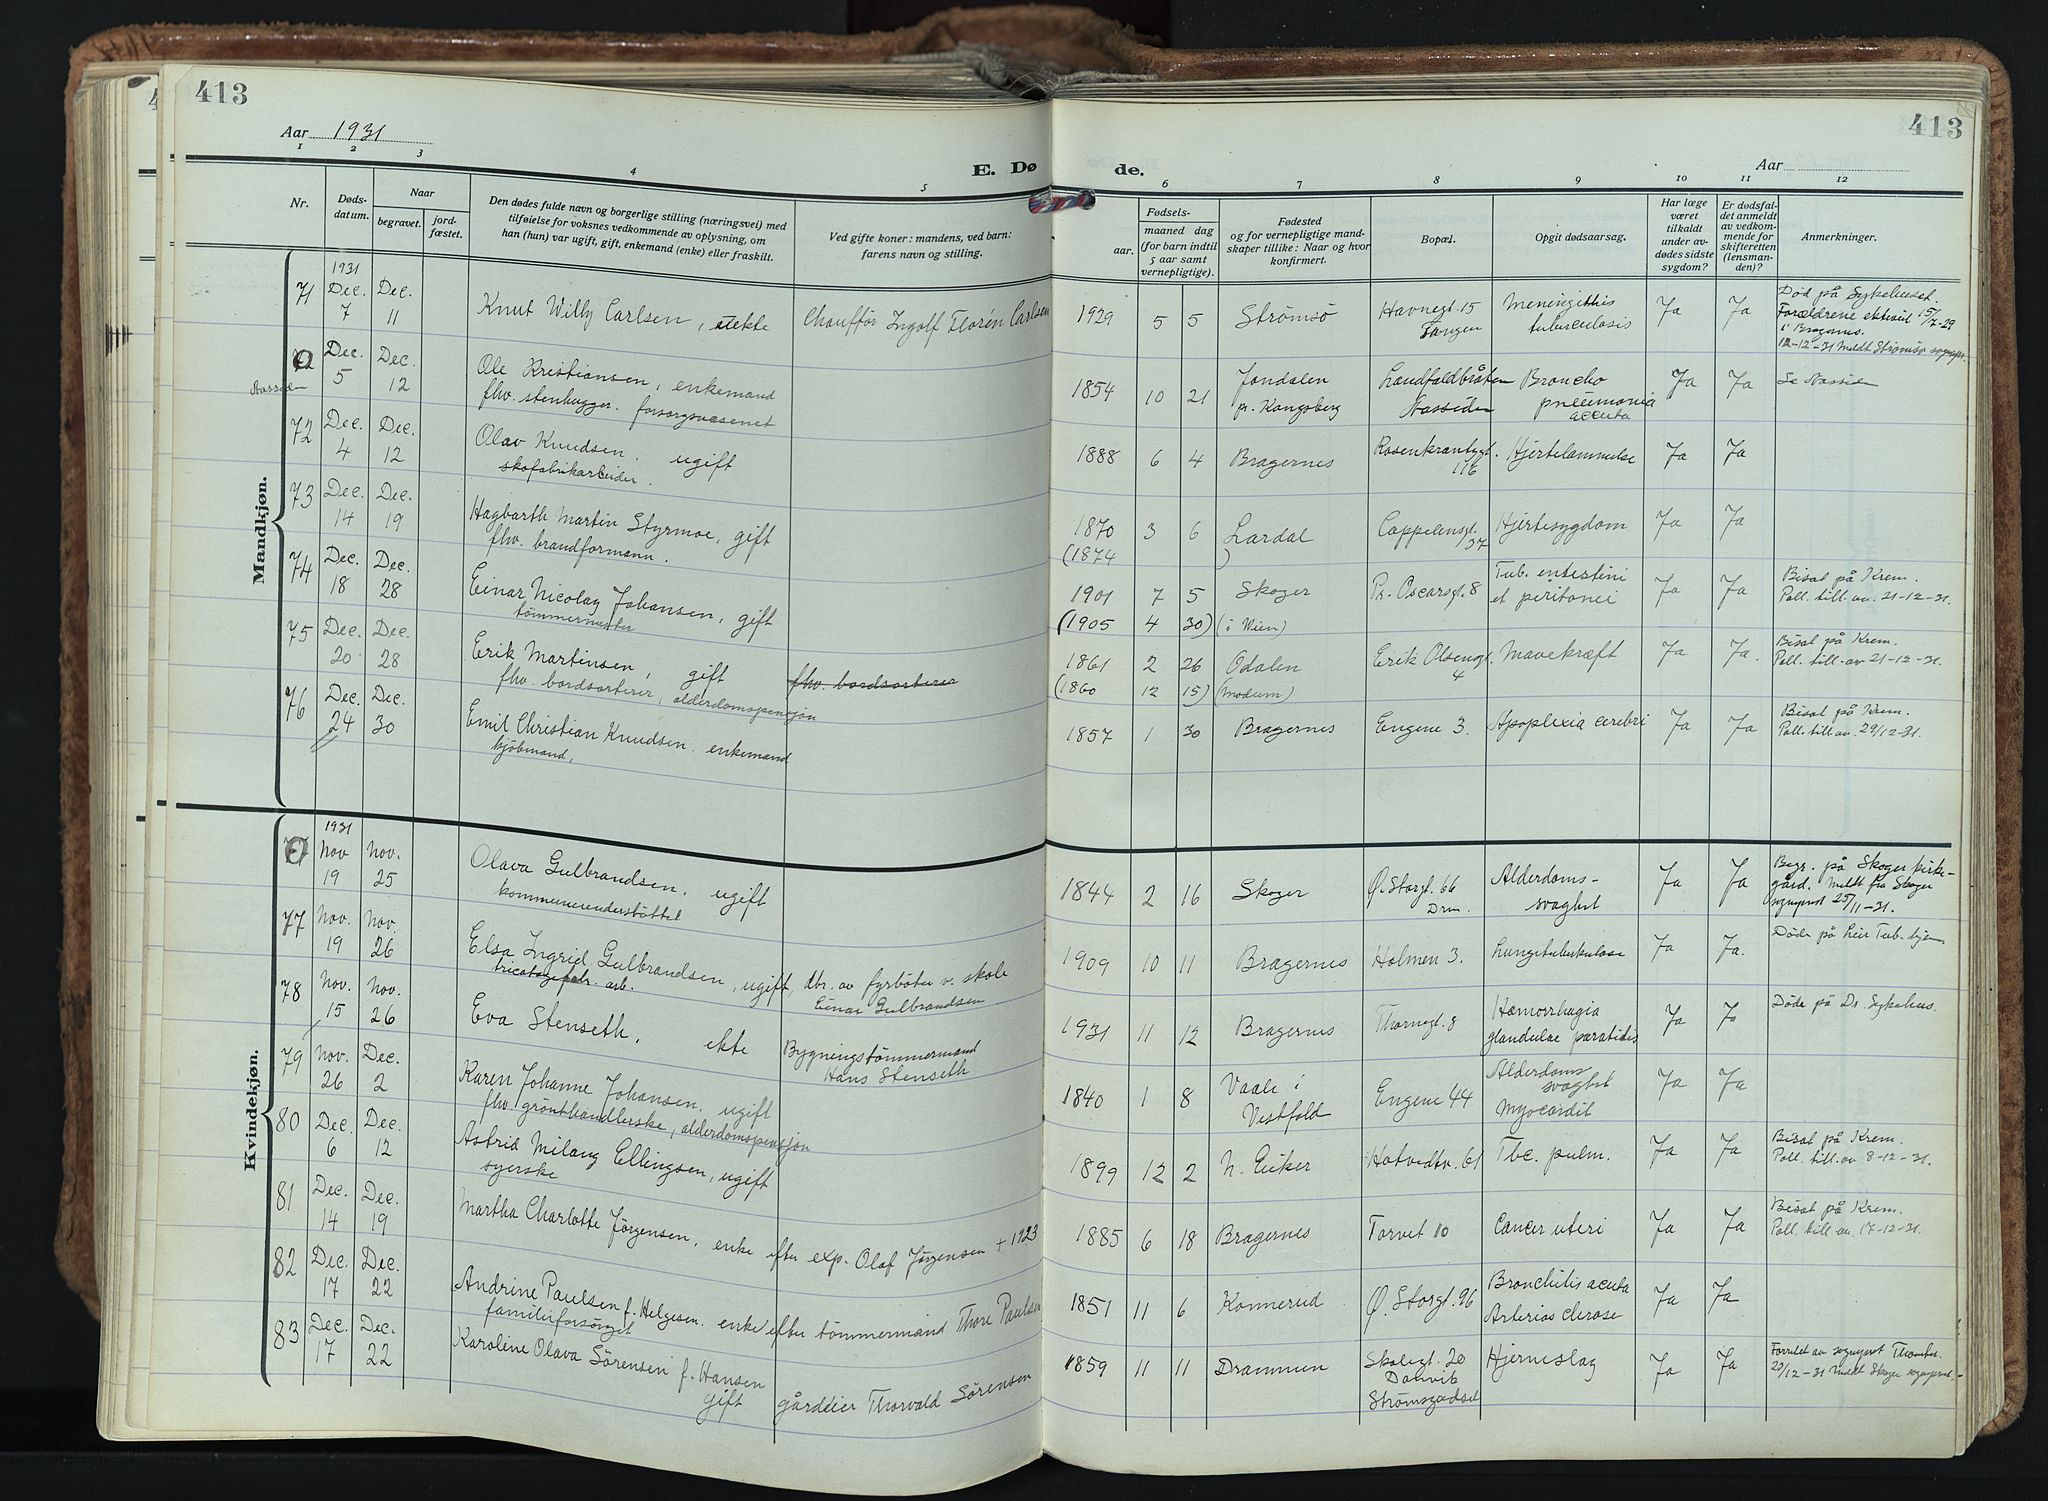 413
413
Aar 1931
Aar
1 2 3 4 5 6 7 8 9 10 11 12
E. Døde.
Nr.
Døds-
datum.
Naar
begravet.
jord-
fæstet.
Den dødes fulde navn og borgerlige stilling (næringsvei) med
tilføielse for voksnes vedkommende av oplysning, om
han (hun) var ugift, gift, enkemand (enke) eller fraskilt.
Ved gifte koner: mandens, ved barn:
farens navn og stilling.
Fødsels-
aar.
maaned dag
(for barn indtil
5 aar samt
vernepligtige).
Fødested
og for vernepligtige mand-
skaper tillike: Naar og hvor
konfirmert.
Bopæl.
Opgit dødsaarsag.
Har læge
været
tilkaldt
under av-
dødes sidste
sygdom?
Er dødsfal-
det anmeldt
av vedkom-
mende for
skifteretten
(lensman-
den)?
Anmerkninger.
Mandkjøn.
1931
71 Dec. 7 Dec. 11 Knut Willy Carlsen, uekte Chauffør Ingolf Florén Carlsen 1929 5 5 Strømsø Havnegt. 15 Tangen Meningitis tuberculosis Ja Ja Død på Sykehuset. Forældrene ektevid 15/7-29
i Bragernes.
12-12-31 Meldt Strømsø sognepr.
0 Dec. 5 Dec. 12 Ole Kristiansen, enkemand 1854 10 21 Jondalen pr. Kongsberg Landfaldbråten Aassiden Broncho pneumonia accuta Ja Ja Se Aassiden
Aassiden
fhv. stenhugger. forsorgsvæsenet
72 Dec. 4 Dec. 12 Olav Knudsen, ugift 1888 6 4 Bragernes Rosenkrantzgt. 116 Hjertelammelse Ja Ja
skofabrikarbeider.
73 Dec. 14 Dec. 19 Hagbarth Martin Styrmoe, gift 1870 3 6 Lardal Cappelensgt. 37 Hjertesygdom Ja Ja
fhv. brandformann. (1874 )
74 Dec. 18 Dec. 28 Einar Nicolay Johansen, gift 1901 7 5 Skoger Pr. Oscarsgt. 8 Tub. entestini et peritonei Ja Ja Bisat på Krem.
Poll. till. av. 21-12-31.
tømmermester (1905 4 30) (i Wien)
75 Dec. 20 Dec. 28 Erik Martinsen, gift fhv. bordsorterer 1861 2 26 Odalen Erik Olsensgt. 4 Mavekræft Ja Ja. Bisat på Krem.
Poll. till. av 21-12-31.
fhv. bordsorterer, alderdomspensjon (1860 12 15) (Modum)
76 Dec. 24 Dec. 30 Emil Christian Knudsen. enkemand 1857 1 30 Bragernes Engene 3. Apoplexia cerebri Ja Ja Bisat på Krem.
Poll. till av. 29/12-31.
kjøbmand,
Kvindekjøn.
1931
0 Nov. 19 Nov. 25 Olava Gulbrandsen, ugift 1844 2 16 Skoger Ø. Storgt. 66 Drm. Alderdoms-svaghet Ja Ja Begr. på Skoger kirke-
gård. Meldt fra Skoger
sogneprest 25/11-31.
kommuneunderstøttet
77 Nov. 19 Nov. 26 Elsa Ingrid Gulbrandsen, ugift, dtr. av fyrbøter v. skole Einar Gulbrandsen 1909 10 11 Bragernes Holmen 3. Lungetuberkulose Ja Ja. Døde på Lier Tub. hjem
tricotagefabr. arb.
78 Nov. 15 Nov. 26 Eva Stenseth, ekte Bygningstømmermand Hans Stenseth 1931 11 12 Bragernes Thornegt. 8 Hæmorrhagia glandulae paratidis Ja Ja Døde på Dr. Sykehus.
79 Nov. 26 Dec. 2 Karen Johanne Johansen, ugift 1840 1 8 Vaale i Vestfold Engene 44 Alderdoms svaghet Myocardit Ja Ja
fhv. grønthandlerske, alderdomspensjon
80 Dec. 6 Dec. 12 Astrid Milany Ellingsen, ugift 1899 12 2 N. Eiker Hotvedtv. 61 Tbc. pulm. Ja Ja Bisat på Krem.
Poll. till. av 8-12-31.
syerske
81 Dec. 14 Dec. 19 Martha Charlotte Jørgensen, enke efter exp. Olaf Jørgensen + 1923 1885 6 18 Bragernes Torvet 10 Cancer uteri Ja Ja Bisat på Krem.
Poll. till av. 17-12-31.
82 Dec. 17 Dec. 22 Andrine Paulsen f. Helgesen. enke efter tømmermand Thore Paulsen 1851 11 6 Konnerud Ø. Storgt. 96 Bronchitis acuta Arteriosclerose Ja Ja
familieforsørget
83 Dec. 17 Dec. 22 Karoline Olava Sørensen f. Hansen gift gårdeier Thorvald Sørensen 1859 11 11 Drammen Skolegt. 20 Danvik Strømsgodset Hjerneslag Ja Ja Forrettet av sogneprest
20/12-31 Meldt Skoger sogneprest.